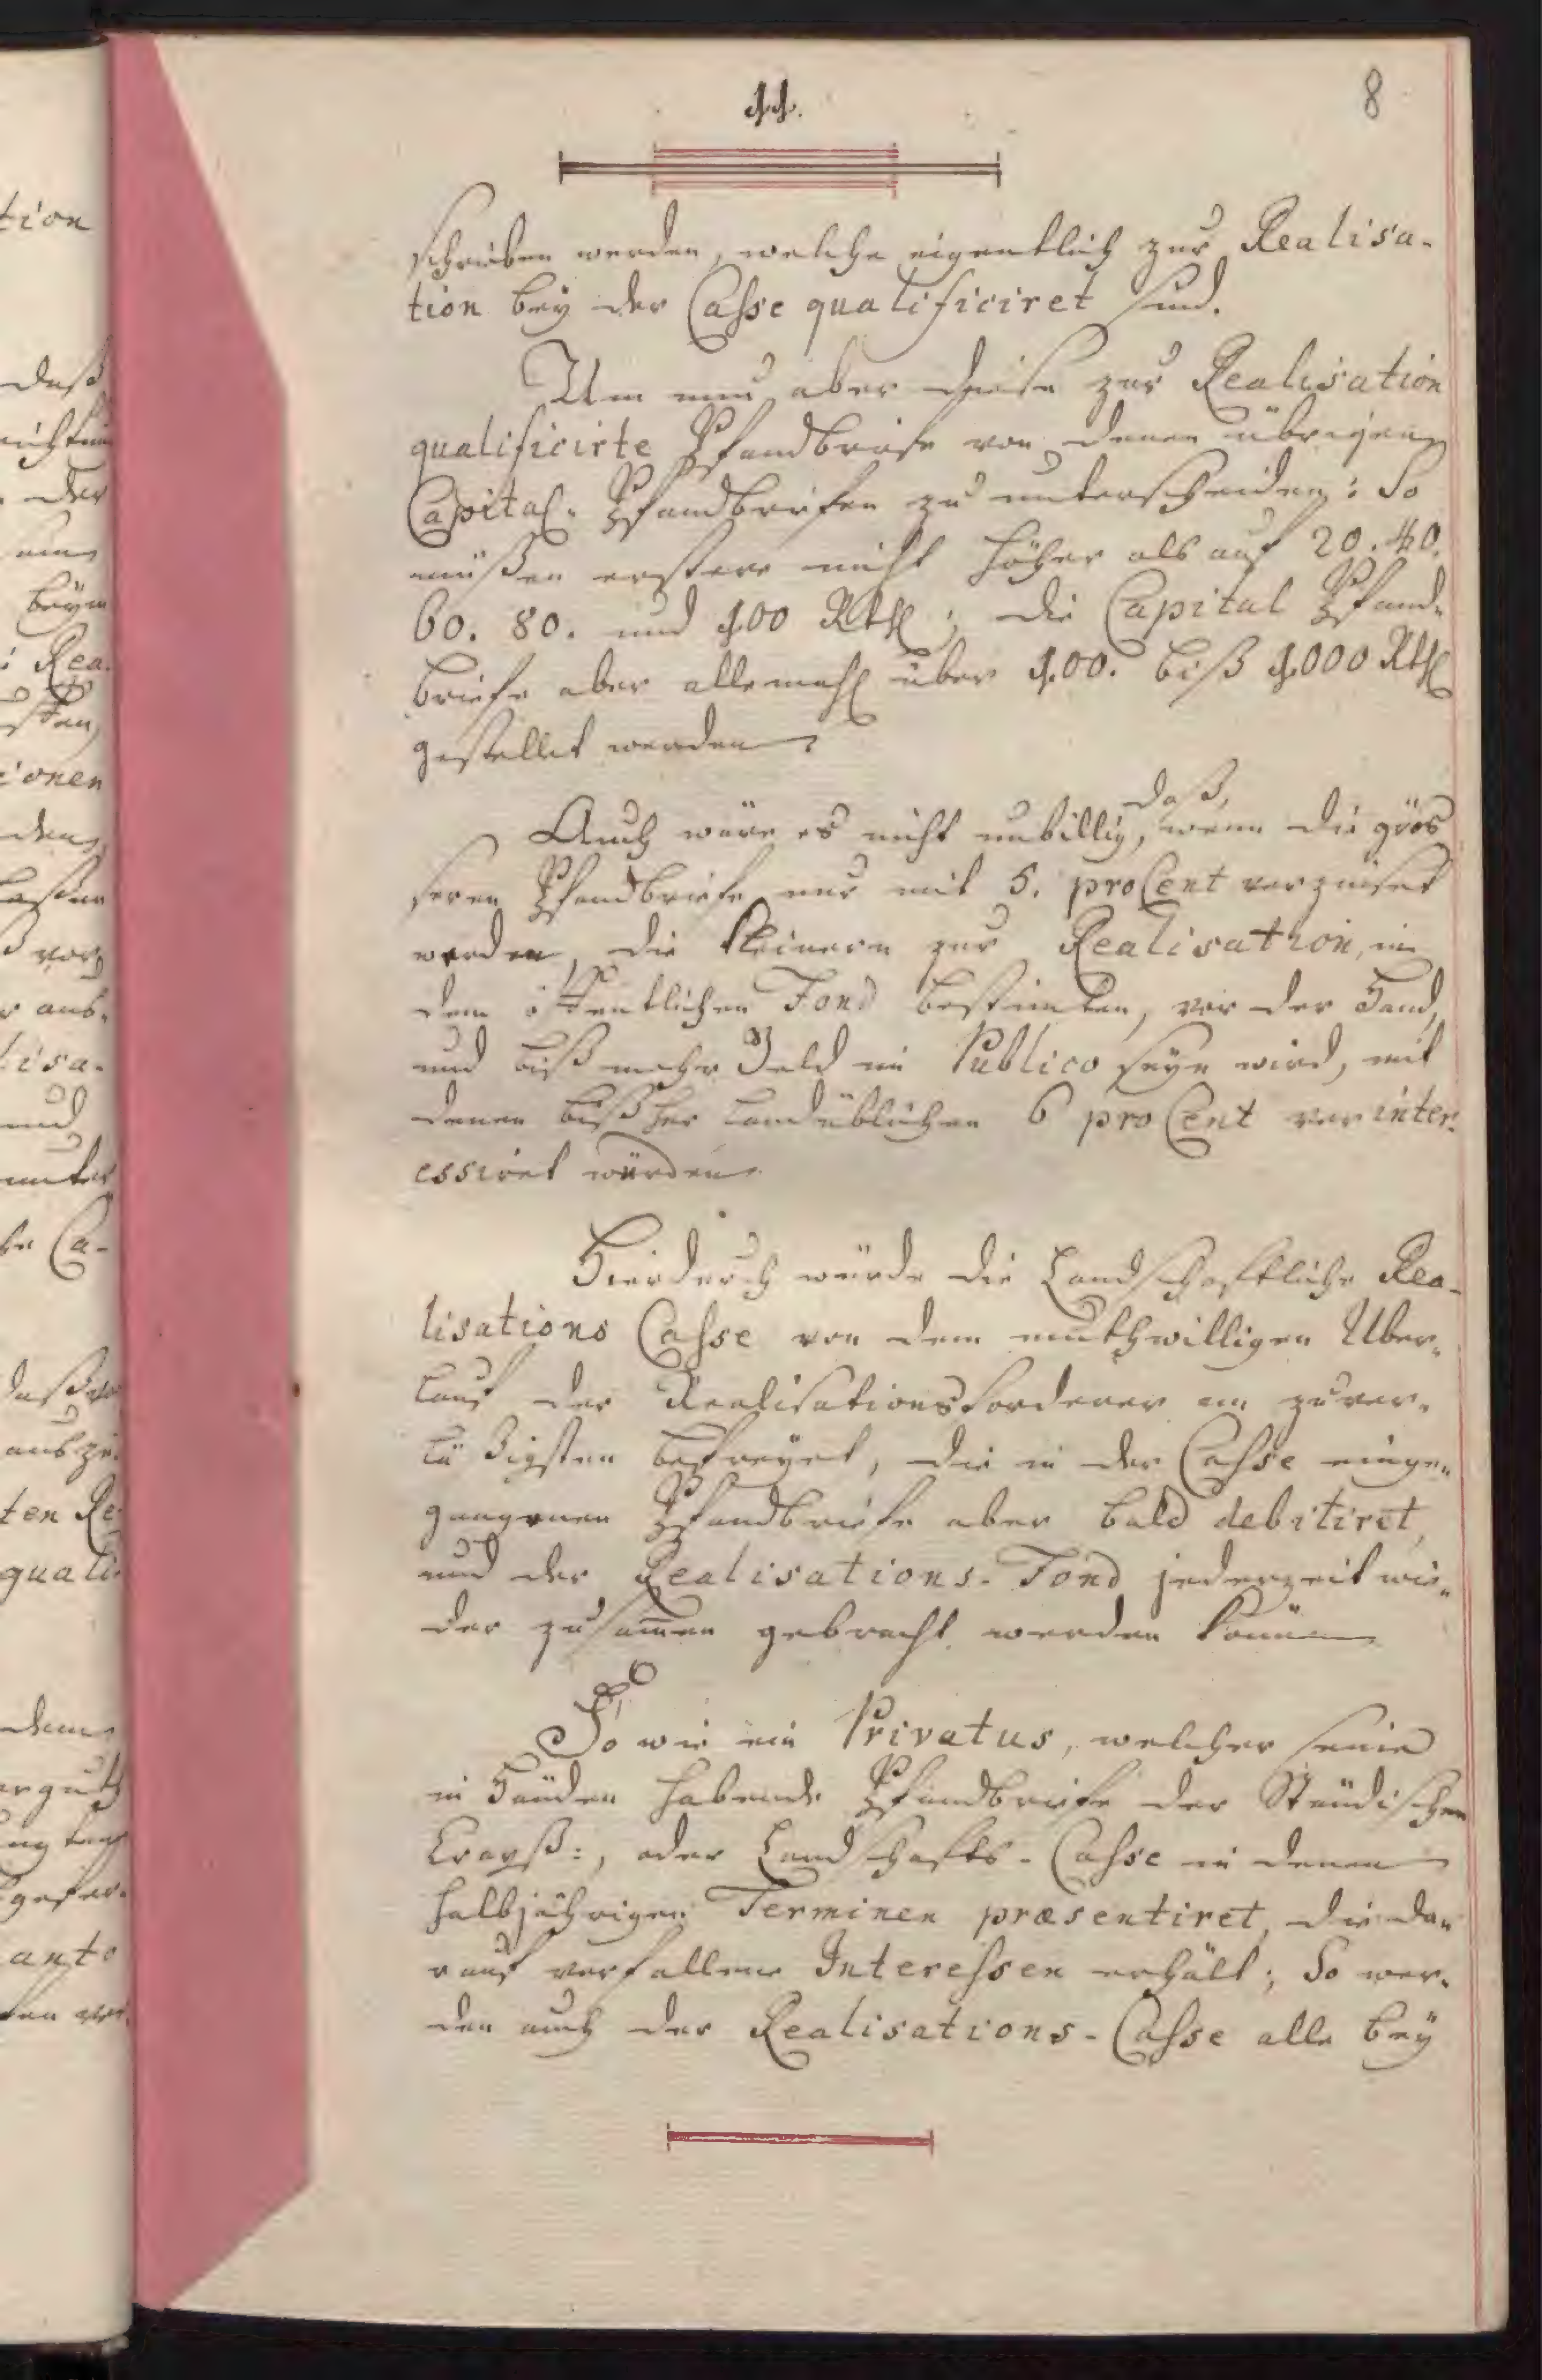 11.
8
schrieben werden, welche eigentlich zur Realisa-
tion bey der Casse qualificiret sind.
Um nun aber diese zur Realisation
qualificirte Pfandbriefe von denen übrigen
Capital-Pfandbriefen zu unterscheiden: So
müßen erstere nicht höher als auf 20. 40.
60. 80. und 100 Rthl; die Capital Pfand-
briefe aber allemahl über 100. biß 1000 Rthl
gestellet werden
Auch wäre es nicht unbillig, daß, wenn die grös
seren Pfandbriefe nur mit 5. pro Cent verzinset
werden, die kleinern zur Realisation, in
dem öffentlichen Fond bestimten, vor der Hand,
und biß mehr Geld in Publico seyn wird, mit
denen bißher landüblichen 6 pro Cent verinter-
essiret würden
Hierdurch würde die Landschaftliche Rea-
lisations Casse von dem muthwilligen Uber-
lauf der Realisationsforderer am zuver-
läßigsten befreyet, die in der Casse einge-
gangenen Pfandbriefe aber bald debitiret,
und der Realisations-Fond jederzeit wie-
der zusammen gebracht werden können
So wie ein Privatus, welcher seine
in Händen habende Pfandbriefe der Ständischen
Crayß-, oder Landschafts-Casse in denen
halbjährigen Terminen præsentiret, die da-
rauf verfallene Interessen erhält; So wer-
den auch der Realisations-Casse alle bey